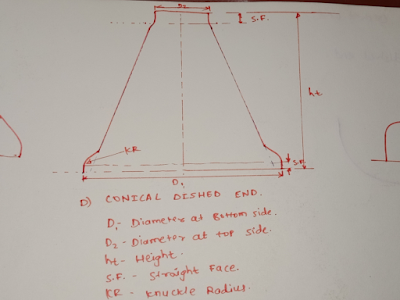 D2
S.F.
ht
KR
S.F.
D1
D) CONICAL DISHED END.
D1 - Diameter at Bottom side.
D2 - Diameter at top side.
ht - Height.
S.F. - Straight Face.
KR - Knuckle Radius.